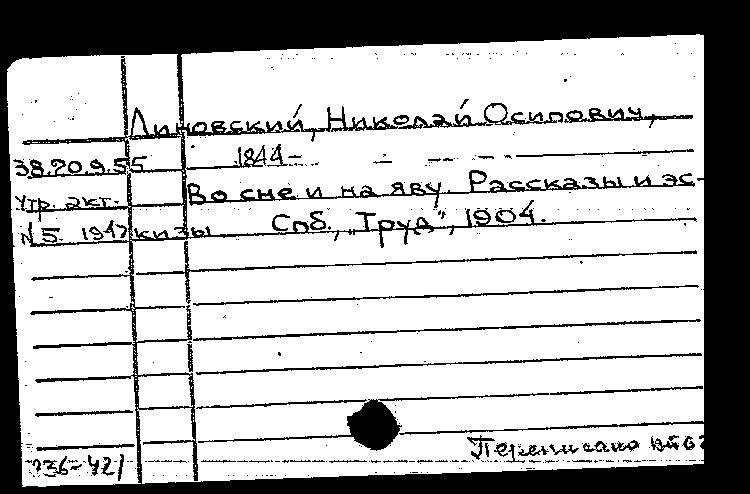 Линовский, Николай Осипович,
38.20.9.55 1844-
Утр. акт. Во сне и на яву. Рассказы и эс-
№5. 1947 кизы. Спб., „Труд", 1904.
Переписано
736-421